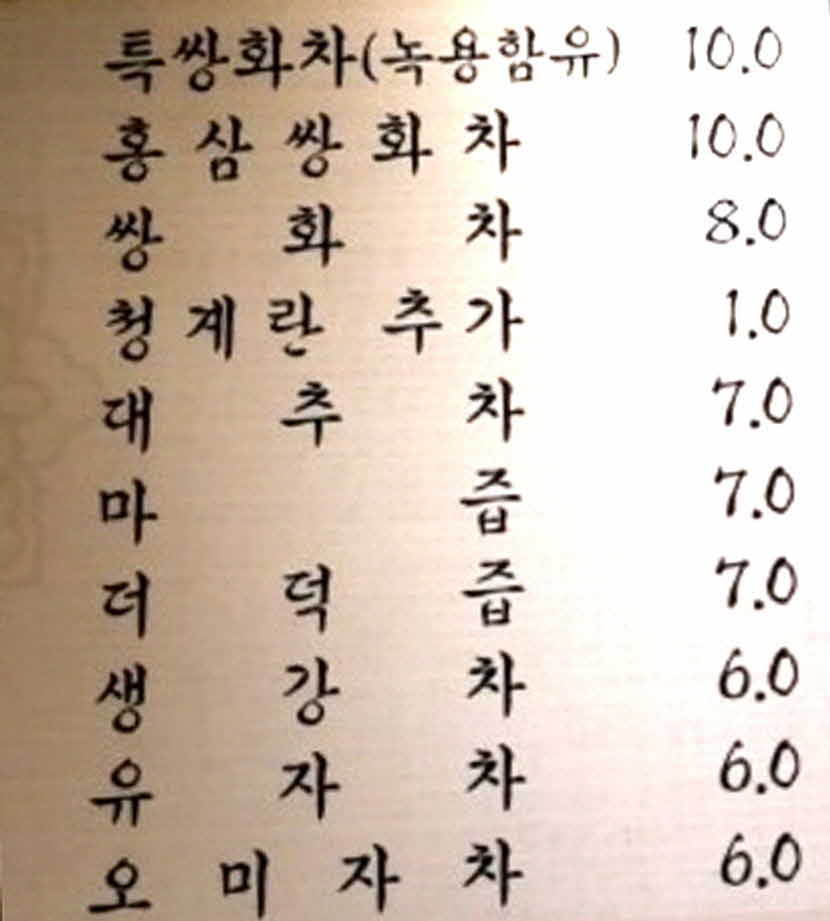 특쌍화차(녹용함유) 10.0
홍삼쌍화차 10.0
쌍화차 8.0
청계란 추가 1.0
대추차 7.0
마즙 7.0
더덕즙 7.0
생강차 6.0
유자차 6.0
오미자차 6.0